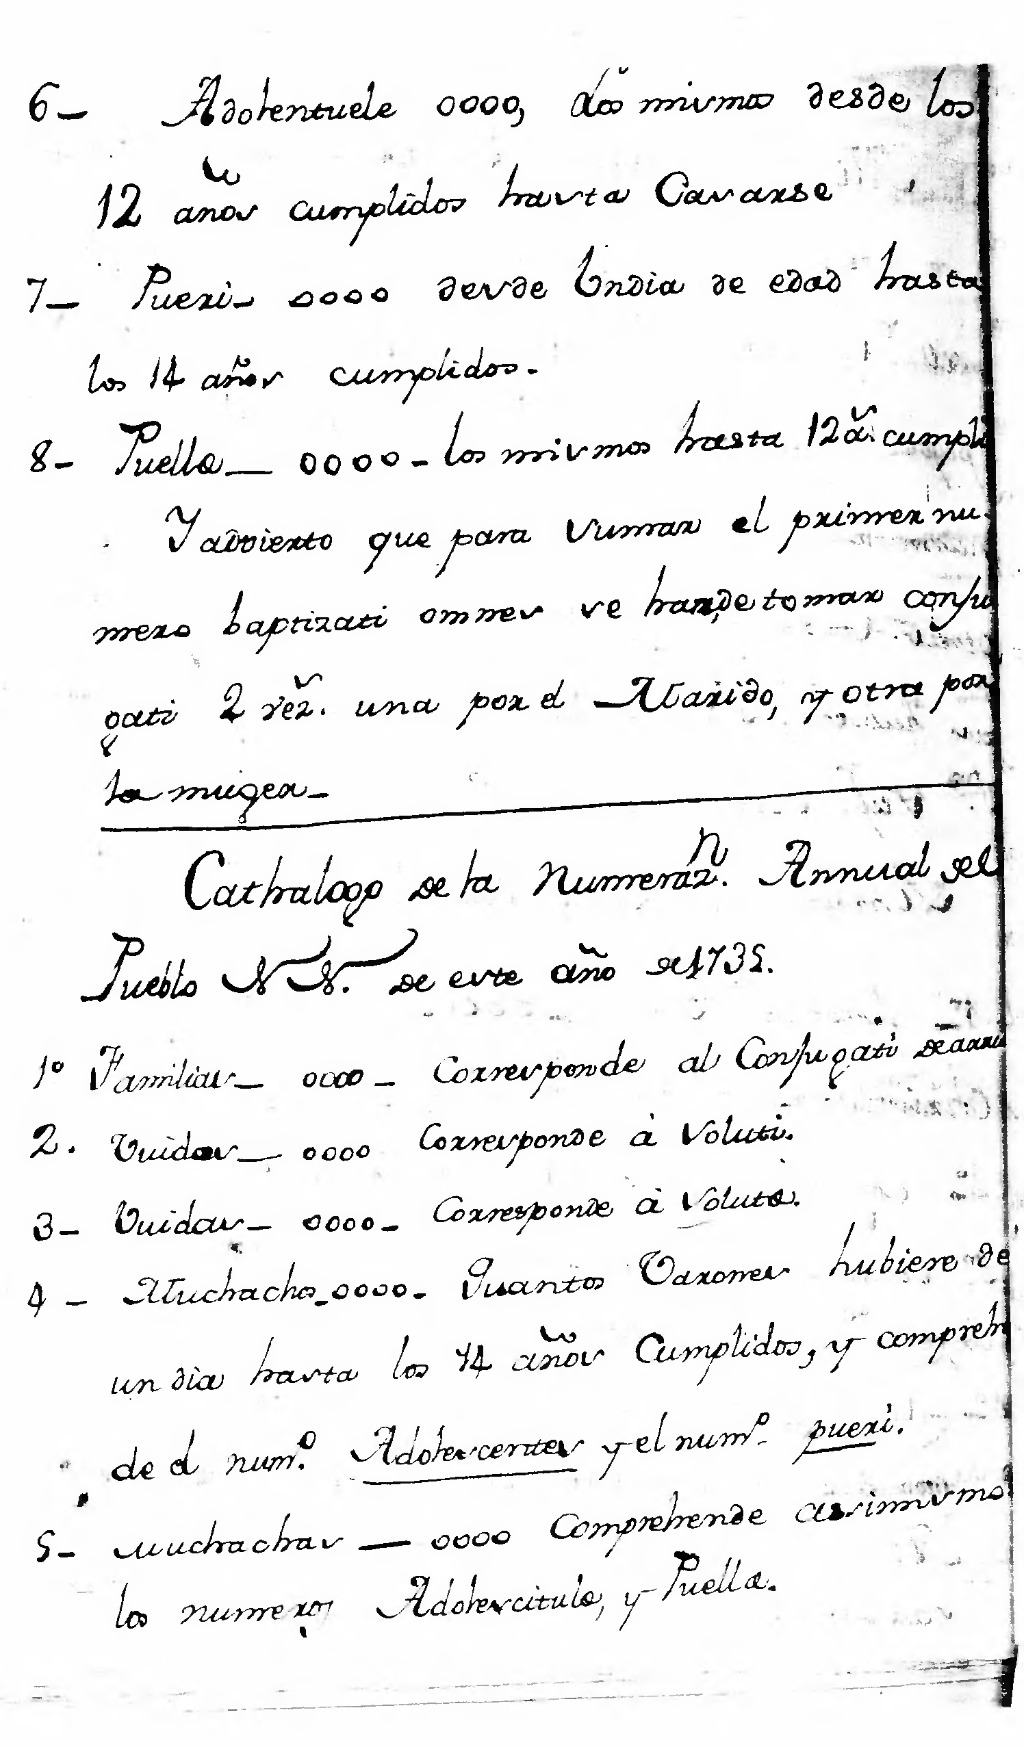 6- Adolentuele 0000, los mismos desde los
12 años cumplidos hasta Casarse
7- Pueri- 0000 desde Undia de edad hasta
los 14 años cumplidos-
8- Puellæ- 0000- los mismos hasta 12 a.s cumpli
Y advierto que para sumar el primer nu-
mero baptizati omnes se han de tomar conju
gati 2 vez.s una por el Marido, y otra por
la muger-
Cathalogo de la Numeraz.n Annual del
Pueblo N. N. de este año de 1735.
1º Familias- 0000- Corresponde al Conjugati de arri
2. Viudos- 0000 Corresponde à Viduti.
3- Viudas- 0000- Corresponde à Vidutæ.
4- Muchachos-0000- Quantos Varones hubiere de
un dia hasta los 14 años Cumplidos, y compreh
de el num.o Adolescentes y el num.o pueri.
5- Muchachas- 0000 Comprehende assimismo
los numeros Adolescitulæ, y Puellæ.